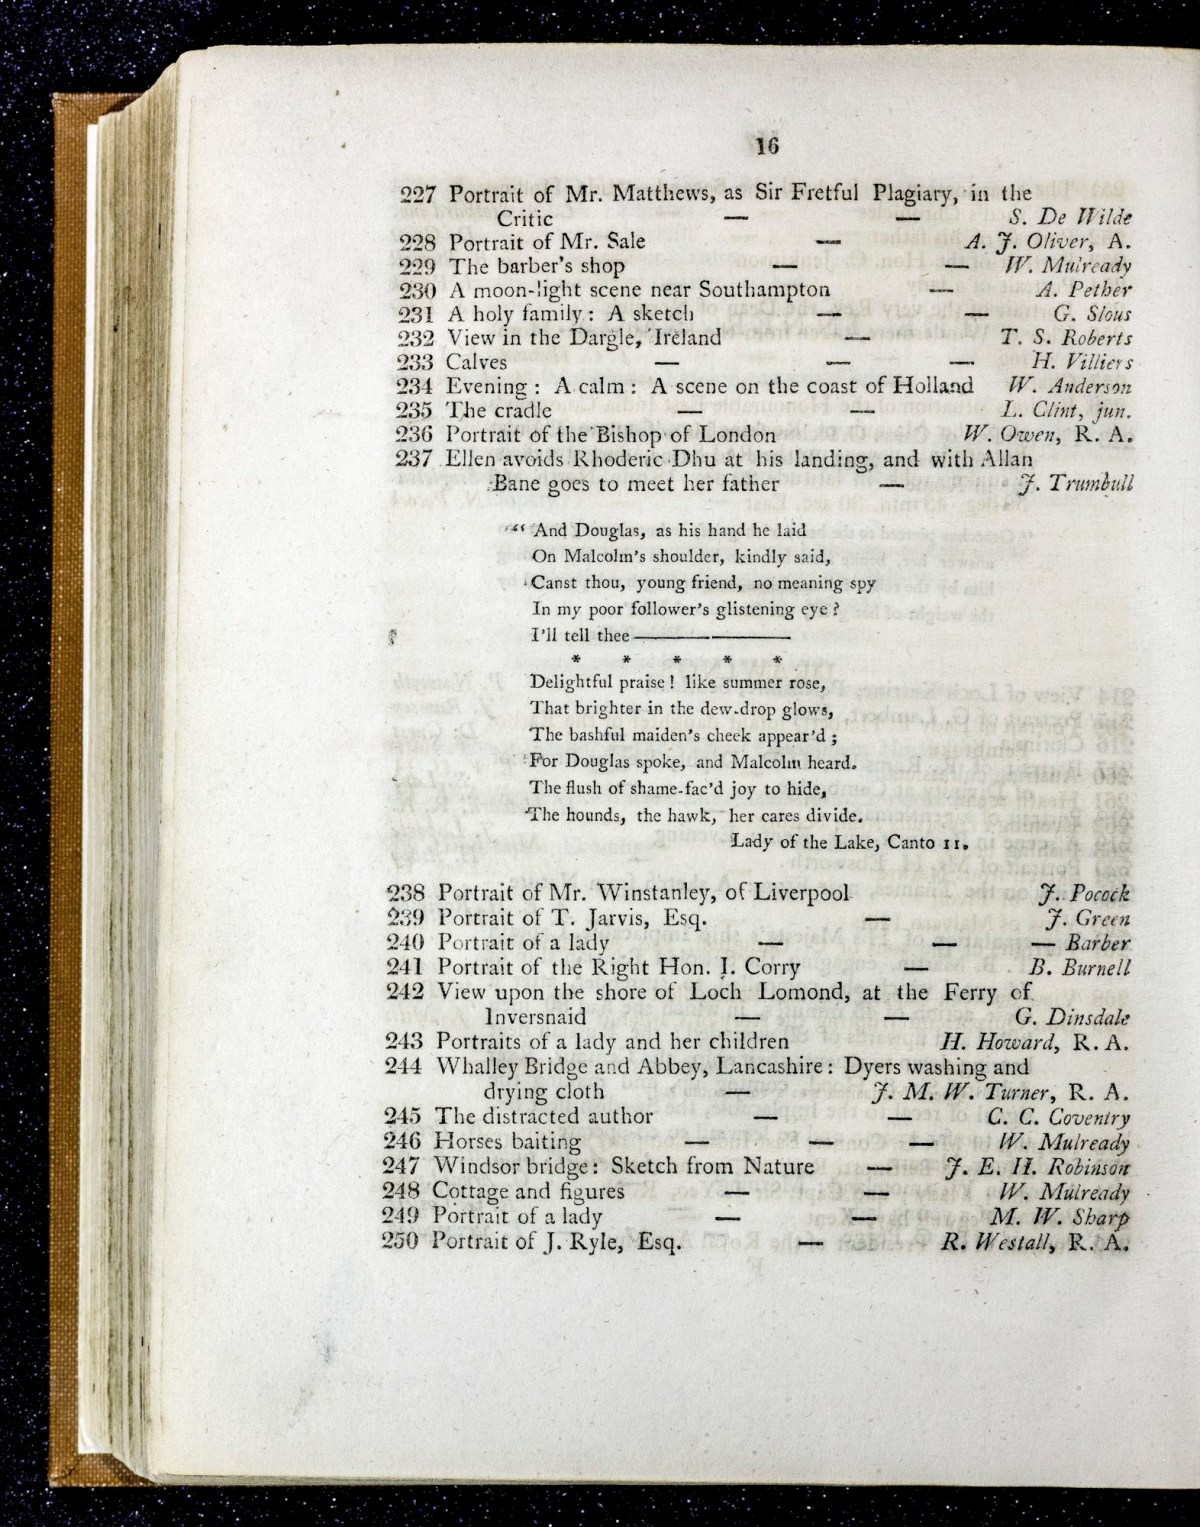 16
227 Portrait of Mr. Matthews, as Sir Fretful Plagiary, in the
Critic — — S. De Wilde
228 Portrait of Mr. Sale — A. J. Oliver, A.
229 The barber's shop — — W. Mulready
230 A moon-light scene near Southampton — A. Pether
231 A holy family: A sketch — — G. Slous
232 View in the Dargle, Ireland — T. S. Roberts
233 Calves — — — H. Villiers
234 Evening: A calm: A scene on the coast of Holland W. Anderson
235 The cradle — — L. Clint, jun.
236 Portrait of the Bishop of London W. Owen, R. A.
237 Ellen avoids Rhoderic Dhu at his landing, and with Allan
Bane goes to meet her father — J. Trumbull
"" And Douglas, as his hand he laid
On Malcolm's shoulder, kindly said,
Canst thou, young friend, no meaning spy
In my poor follower's glistening eye?
I'll tell thee ——————
* * * * *
Delightful praise! like summer rose,
That brighter in the dew-drop glows,
The bashful maiden's cheek appear'd;
For Douglas spoke, and Malcolm heard.
The flush of shame-fac'd joy to hide,
The hounds, the hawk, her cares divide.
Lady of the Lake, Canto 11.
238 Portrait of Mr. Winstanley, of Liverpool J. Pocock
239 Portrait of T. Jarvis, Esq. — J. Green
240 Portrait of a lady — — — Barber
241 Portrait of the Right Hon. I. Corry — B. Burnell
242 View upon the shore of Loch Lomond, at the Ferry of
Inversnaid — — G. Dinsdale
243 Portraits of a lady and her children H. Howard, R. A.
244 Whalley Bridge and Abbey, Lancashire: Dyers washing and
drying cloth — J. M. W. Turner, R. A.
245 The distracted author — — C. C. Coventry
246 Horses baiting — — — W. Mulready
247 Windsor bridge: Sketch from Nature — J. E. H. Robinson
248 Cottage and figures — — W. Mulready
249 Portrait of a lady — — M. W. Sharp
250 Portrait of J. Ryle, Esq. — R. Westall, R. A.